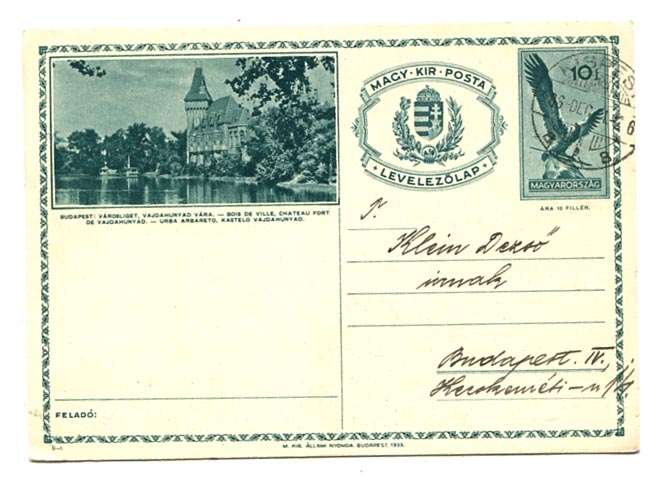 MAGY·KIR·POSTA
LEVELEZŐLAP
10 f.
MAGYARORSZÁG
ÁRA 10 FILLÉR.
BUDAPEST: VÁROSLIGET, VAJDAHUNYAD VÁRA. — BOIS DE VILLE, CHATEAU FORT
DE VAJDAHUNYAD. — URBA ARBARETO, KASTELO VAJDAHUNYAD.
T.
Klein Dezső
úrnak
Budapest. IV.
Kecskeméti-u
FELADÓ:
M. KIR. ÁLLAMI NYOMDA. BUDAPEST, 1933.